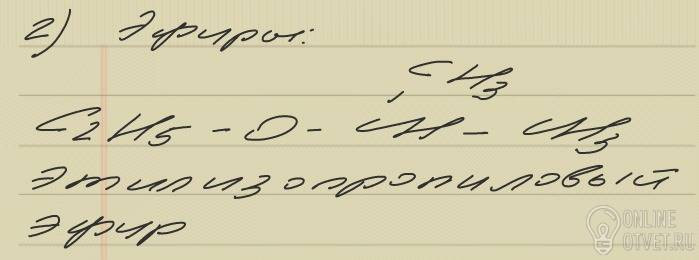 2) Эфиры:
CH3
C2H5 - O - CH - CH3
Этилизопропиловый
Эфир
ONLINE
OTVET.RU